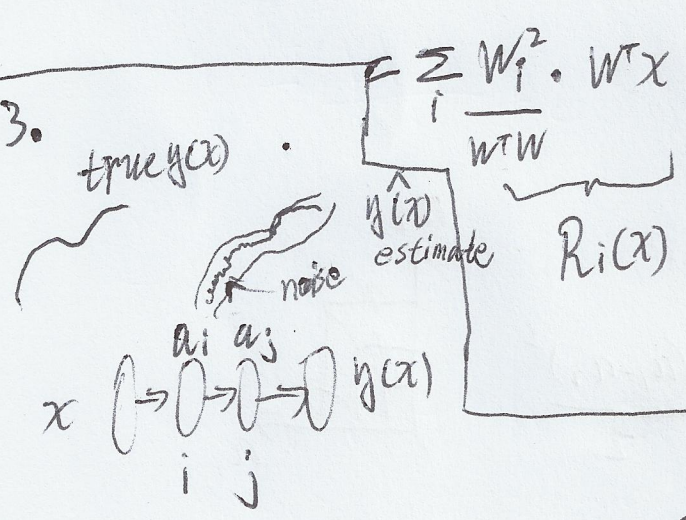 = Σ_i W_i^2 / W^T W · W^T x
R_i(x)
3.
true y(x)
ŷ(x)
estimate
noise
a_i a_j
x → → → y(x)
i j